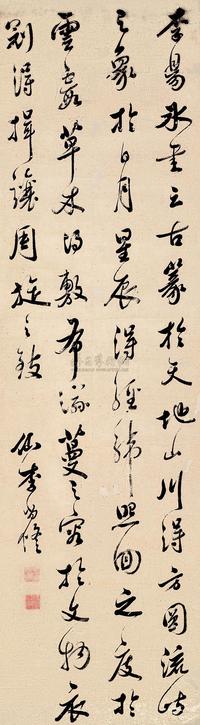 李陽冰書云古篆於天地山川得方圓流峙
之象於日月星辰得經緯照回之度於
雲霞草木得敷布滋蔓之容於文物衣
冠得揖讓周旋之
仙李